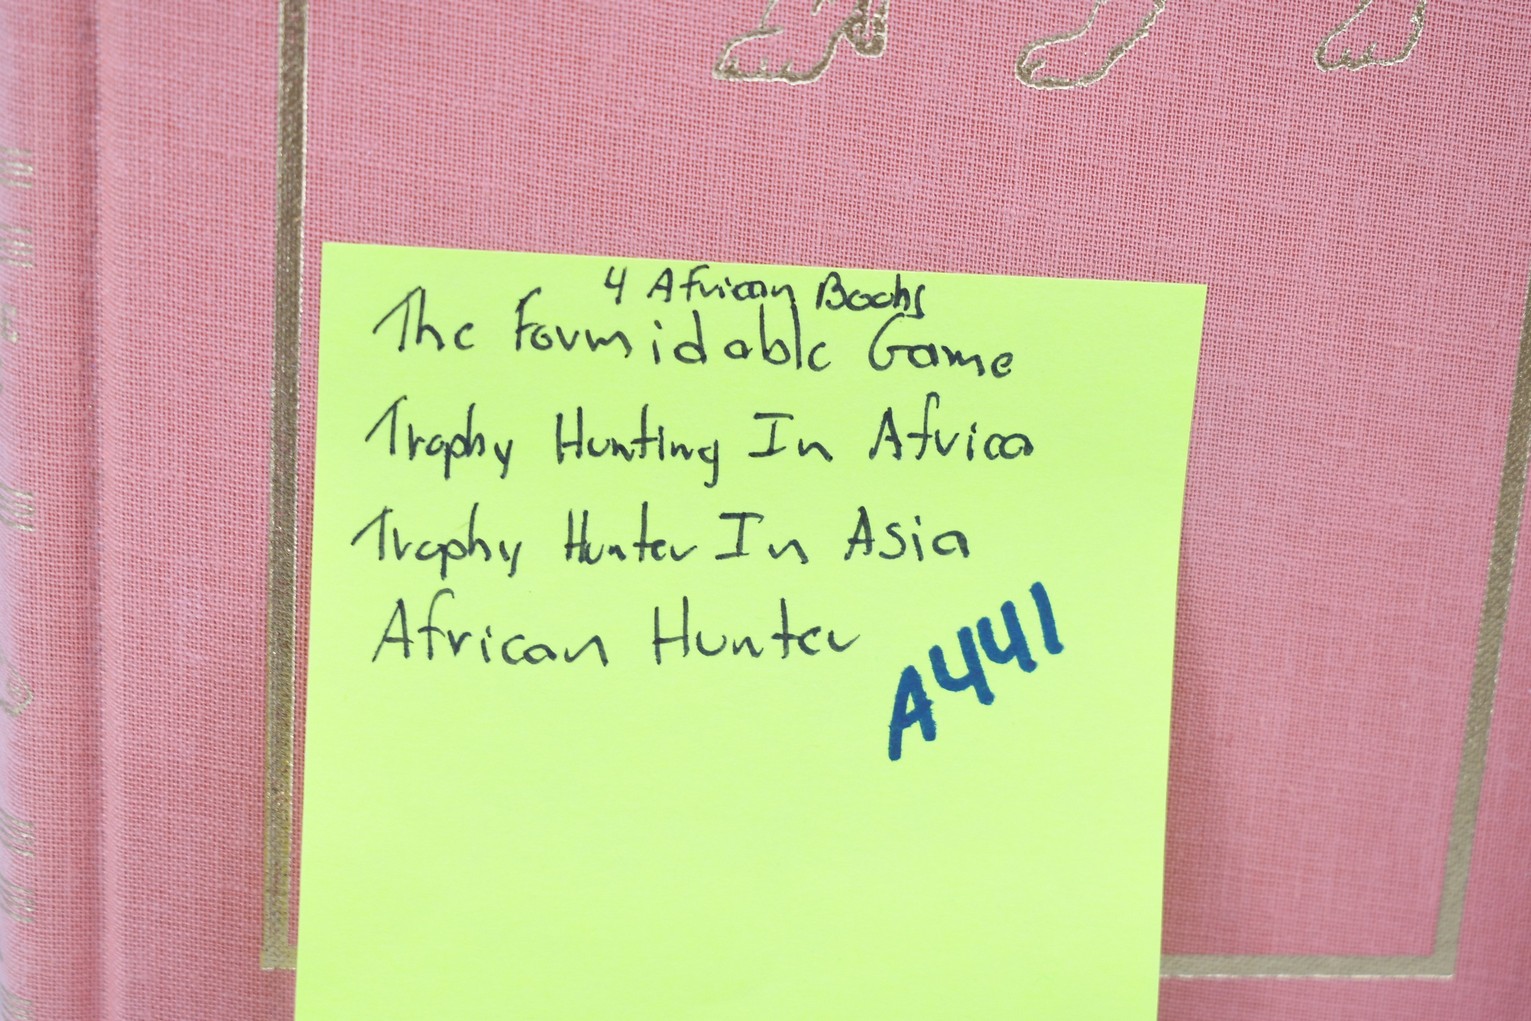 4 African Books
The Formidable Game
Trophy Hunting In Africa
Trophy Hunter In Asia
African Hunter
A441